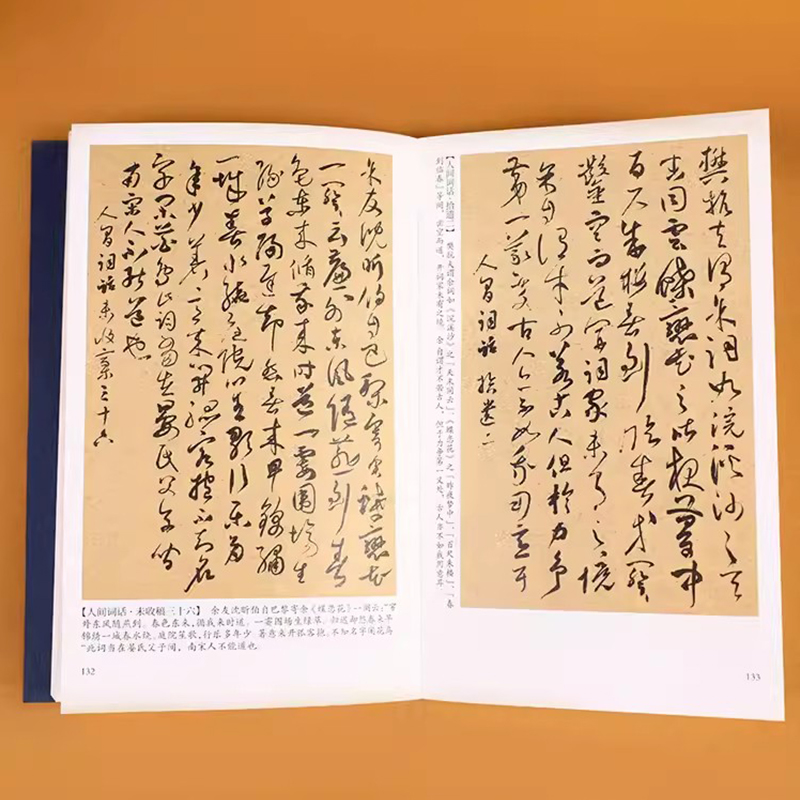 余友沈昕伯自巴黎寄余蝶戀花
一闋云簾外東風隨燕到春
色東來循我來時道一霎圍場生
綠草歸遲却怨春來早錦繡
一城春水繞庭院笙歌行樂多
年少著意來開孤客抱不知名
字閒花鳥此詞當在晏氏父子間
南宋人不能道也
人間詞話未收稾三十六
【人间词话·未收稿三十六】 余友沈昕伯自巴黎寄余《蝶恋花》一阕云:"帘
外东风随燕到。春色东来，循我来时道。一霎围场生绿草。归迟却怨春来早
锦绣一城春水绕。庭院笙歌，行乐多年少 著意来开孤客抱。不知名字闲花鸟
"此词当在晏氏父子间，南宋人不能道也。
132
樊抗夫謂余詞如浣溪沙之天
末同雲蝶戀花之昨夜夢中
百尺朱樓春到臨春等闋
鑿空而道開詞家未有之境
余自謂才不若古人但於力爭
第一義處古人亦不如我用意耳
人間詞話拾遺二
【人间词话·拾遗二】 樊抗夫谓余词如《浣溪沙》之「天末同云」、《蝶恋花》之「昨夜梦中」、「百尺朱楼」、「春
到临春」等阕，凿空而道，开词家未有之境。余自谓才不若古人，但于力争第一义处，古人亦不如我用意耳
133